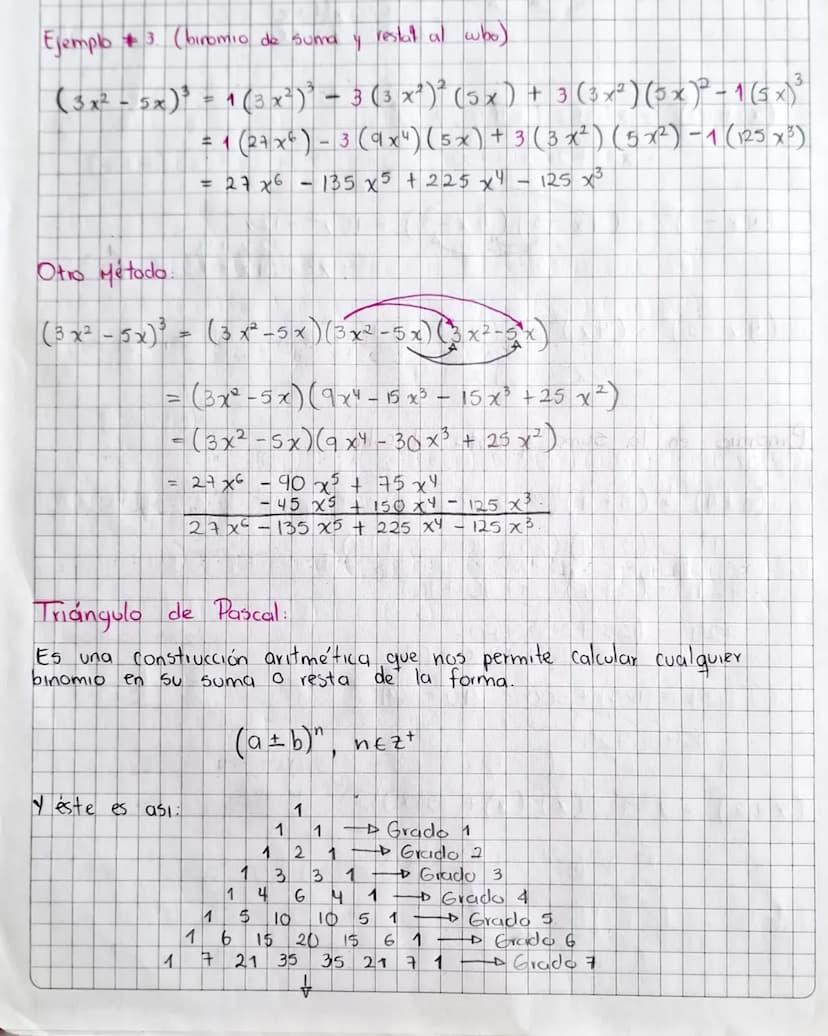 Ejemplo # 3 (binomio de suma y resta al cubo)
(3x² - 5x)³ = 1(3x²)³ - 3(3x²)²(5x) + 3(3x²)(5x)² - 1(5x)³
= 1(27x⁶) - 3(9x⁴)(5x) + 3(3x²)(5x²) - 1(125x³)
= 27x⁶ - 135x⁵ + 225x⁴ - 125x³
Otro Método:
(3x² - 5x)³ = (3x² - 5x)(3x² - 5x)(3x² - 5x)
= (3x² - 5x)(9x⁴ - 15x³ - 15x³ + 25x²)
= (3x² - 5x)(9x⁴ - 30x³ + 25x²)
= 27x⁶ - 90x⁵ + 75x⁴
- 45x⁵ + 150x⁴ - 125x³.
27x⁶ - 135x⁵ + 225x⁴ - 125x³.
Triángulo de Pascal:
Es una construcción aritmética que nos permite calcular cualquier
binomio en su suma o resta de la forma.
(a ± b)ⁿ, n ∈ z⁺
Y éste es asi:
1
1 1 → Grado 1
1 2 1 → Grado 2
1 3 3 1 → Grado 3
1 4 6 4 1 → Grado 4
1 5 10 10 5 1 → Grado 5
1 6 15 20 15 6 1 → Grado 6
1 7 21 35 35 21 7 1 → Grado 7